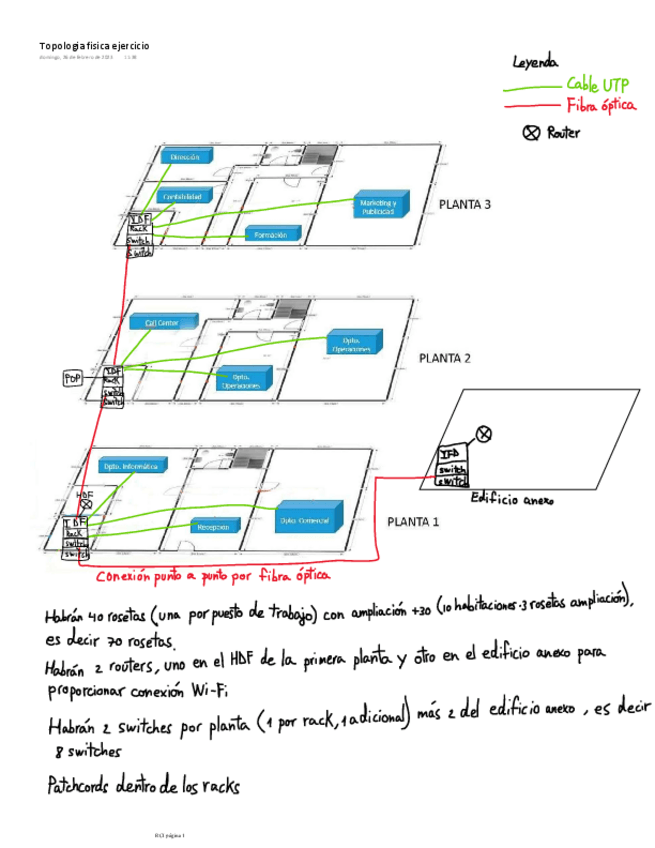 Topologia fisica ejercicio
domingo, 26 de febrero de 2023
Leyenda
Cable UTP
Fibra óptica
Router
Dirección
Contabilidad
Marketing y
Publicidad
Formación
IDF
Rack
switch
switch
PLANTA 3
Call Center
Dpto.
Operaciones
Dpto.
Operaciones
POP
IDF
Rack
switch
switch
PLANTA 2
Dpto. Informática
HDF
IDF
Rack
switch
switch
Recepción
Dpto. Comercial
PLANTA 1
IFD
switch
switch
Edificio anexo
Conexión punto a punto por fibra óptica
Habrán 40 rosetas (una por puesto de trabajo) con ampliación +30 (10 habitaciones·3 rosetas ampliación),
es decir 70 rosetas.
Habrán 2 routers, uno en el HDF de la primera planta y otro en el edificio anexo para
proporcionar conexión Wi-Fi
Habrán 2 switches por planta (1 por rack, 1 adicional) más 2 del edificio anexo, es decir
8 switches
Patchcords dentro de los racks
página 1